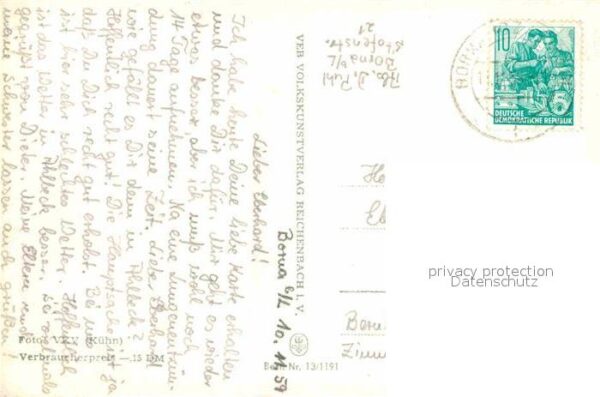 Borna b/L 10.11.59
Lieber Eberhard!
Ich habe heute Deine liebe Karte erhalten
und danke Dir dafür. Mir geht es wieder
etwas besser, aber ich muß wohl noch
14 Tage aufnehmen. Na eine Lungenentzün-
dung dauert seine Zeit. Lieber Eberhard
wie gefällt es Dir denn in Ahlbeck?
Hoffentlich recht gut! Die Hauptsache ist ja
daß Du Dich recht gut erholst. Bei uns
ist hier sehr schlechtes Wetter. Hoffentlich
ist das Wetter in Ahlbeck besser. Sei nochmals
gegrüßt von Dieter. Meine Eltern und
meine Schwester lassen auch grüßen!
Foto: VKV (Kühn)
Verbraucherpreis —.15 DM
VEB VOLKSKUNSTVERLAG REICHENBACH i. V.
Best.-Nr. 13/1191
Abs. D.
Borna b/L
21
10
DEUTSCHE
DEMOKRATISCHE REPUBLIK
5
BORNA
He
Eb
Bern
Zimm
privacy protection
Datenschutz